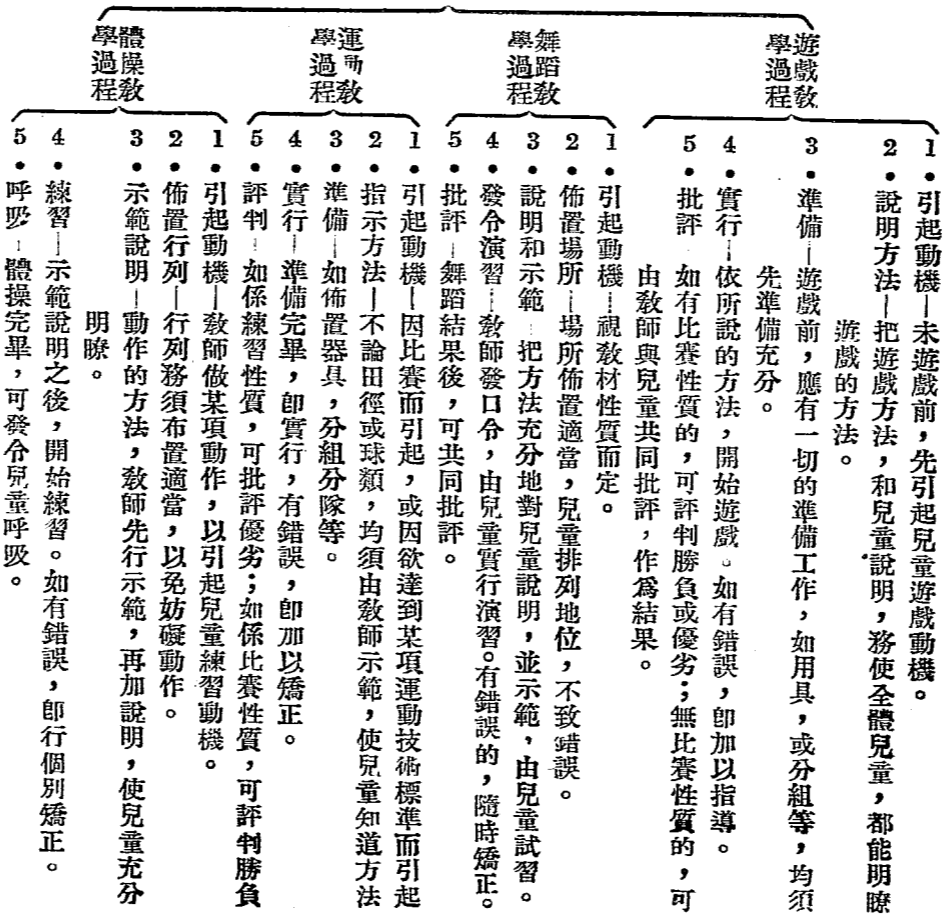 遊戲教
學過程
1．引起動機—未遊戲前，先引起兒童遊戲動機。
2．說明方法—把遊戲方法，和兒童說明，務使全體兒童，都能明瞭
遊戲的方法。
3．準備—遊戲前，應有一切的準備工作，如用具，或分組等，均須
先準備充分。
4．實行—依所說的方法，開始遊戲。如有錯誤，卽加以指導。
5．批評—如有比賽性質的，可評判勝負或優劣；無比賽性質的，可
由教師與兒童共同批評，作爲結果。
舞蹈教
學過程
1．引起動機—視教材性質而定。
2．佈置場所—場所佈置適當，兒童排列地位，不致錯誤。
3．說明和示範—把方法充分地對兒童說明，並示範，由兒童試習。
4．發令演習—教師發口令，由兒童實行演習。有錯誤的，隨時矯正。
5．批評—舞蹈結果後，可共同批評。
運動教
學過程
1．引起動機—因比賽而引起，或因欲達到某項運動技術標準而引起
2．指示方法—不論田徑或球類，均須由教師示範，使兒童知道方法
3．準備—如佈置器具，分組分隊等。
4．實行—準備完畢，卽實行，有錯誤，卽加以矯正。
5．評判—如係練習性質，可批評優劣；如係比賽性質，可評判勝負
體操教
學過程
1．引起動機—教師做某項動作，以引起兒童練習動機。
2．佈置行列—行列務須布置適當，以免妨礙動作。
3．示範說明—動作的方法，教師先行示範，再加說明，使兒童充分
明瞭。
4．練習—示範說明之後，開始練習。如有錯誤，卽行個別矯正。
5．呼吸—體操完畢，可發令兒童呼吸。